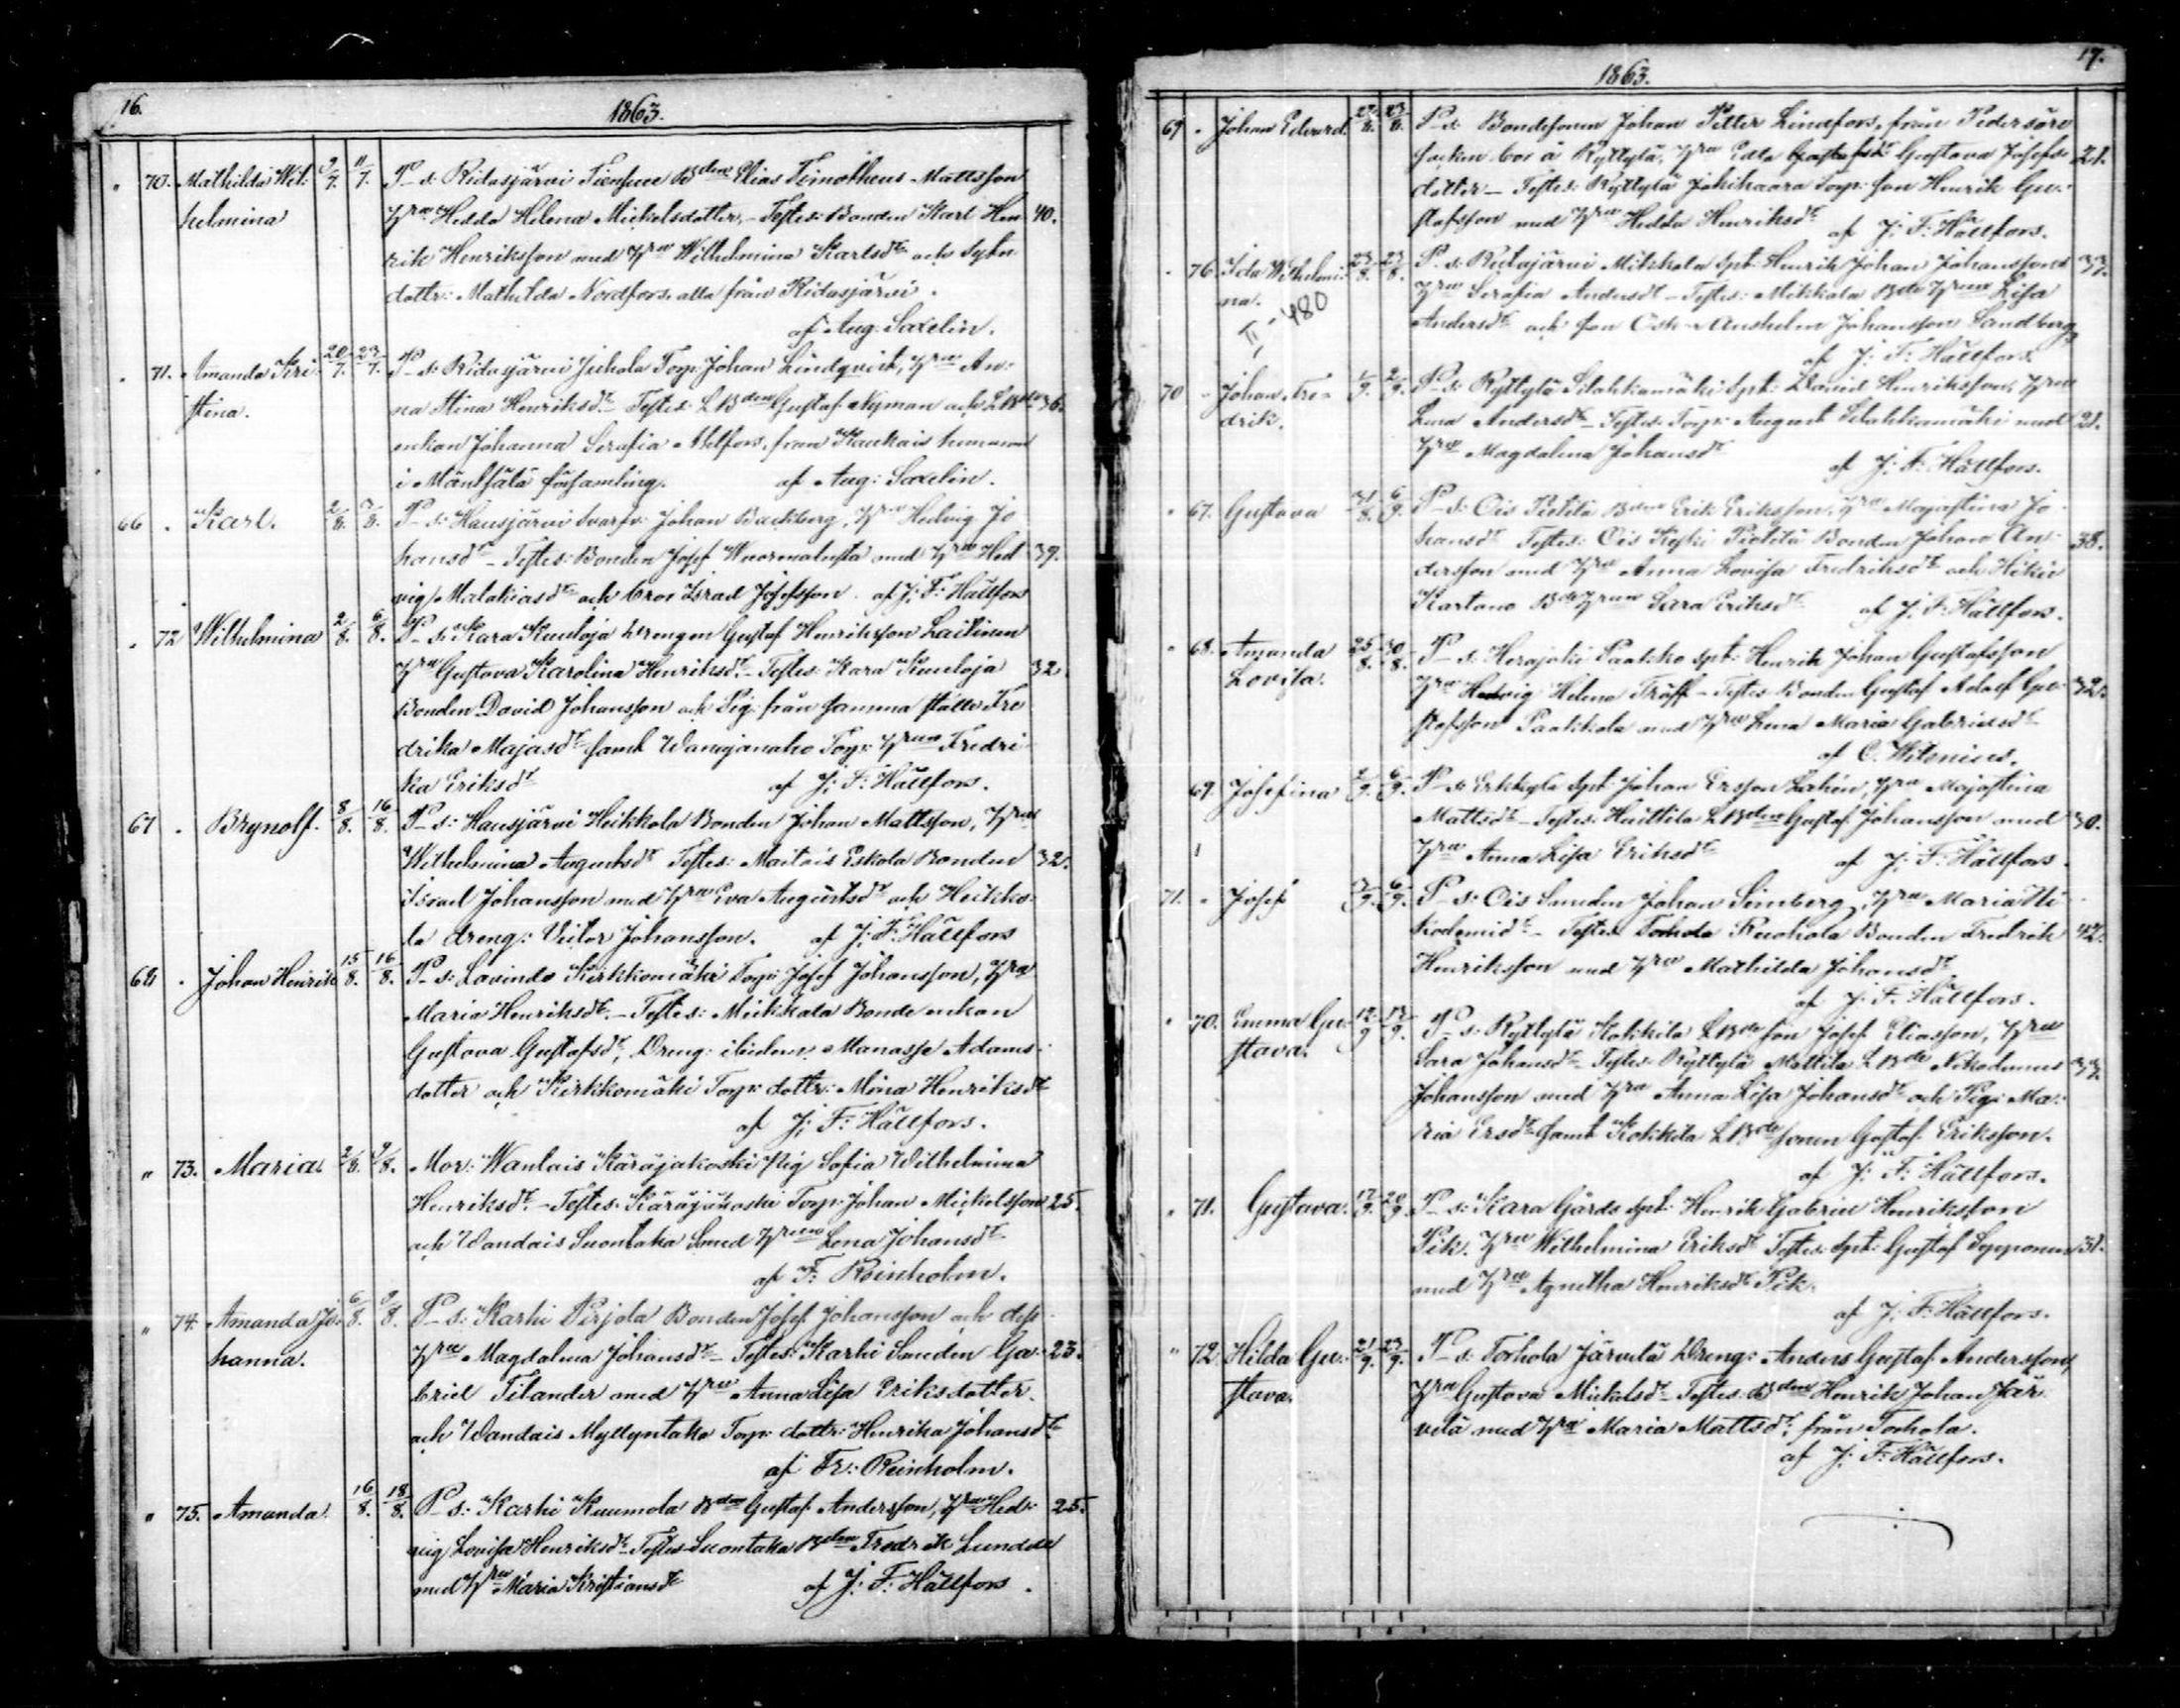 16.
1863.
" 70. Mathilda Wil: 9/7. 11/7. P-s: Ridasjärvi Bden Elias Timotheus Mattsson
helmina hru Hedda Helena Mickelsdotter. - Testes: Bonden Karl Hen 40.
rik Henriksson med hru Wilhelmina Karlsdr och
dottr: Mathilda Nordfors alla från Ridasjärvi.
af Aug. Saxelin.
" 71. Amanda Kri: 20/7. 23/7. P-s: Ridasjärvi Juhola Torp: Johan Lindqvist, hru An:
stina. na Stina Henriksdr Testes: LBden Gustaf Nyman och LBde 36.
enkan Johanna Serafia Ahlfors, från Kaukais
i Mäntsälä församling. af Aug: Saxelin.
66 " Karl. 2/8. 7/8. P-s: Hausjärvi Svarfv: Johan Backberg, hru Hedvig Jo
hansdr - Testes: Bonden Josef Wuormalusta med hru Hed 39.
vig Malakiasdr och bror Israel Josefsson. af J: F: Hällfors
" 72 Wilhelmina 2/8. 6/8. P-s: Kara Kuuloja Drengen Gustaf Henriksson Laitinen
hru Gustava Karolina Henriksdr - Testes: Kara Kuuloja 32.
Bonden David Johansson och Pig: från samma ställe Fre
drika Majasdr samt Wanajanaho Torp: hrun Fredri
ka Eriksdr af J: F: Hällfors.
67 " Brynolf. 8/8. 16/8. P-s: Hausjärvi Heikkola Bonden Johan Mattsson, hru
Wilhelmina Augustsdr Testes: Maitois Eskola Bonden 32.
Israel Johansson med hru Eva Augustsdr och Heikko:
la dreng: Victor Johansson. af J: F: Hällfors
68 " Johan Henrik 15/8. 16/8. P-s: Lavindo Kirkkomäki Torp: Josef Johansson, hru
Maria Henriksdr. - Testes: Mickkala Bonde enkan
Gustava Gustafsdr, Dreng: ibidem Manasse Adams:
dotter och Kirkkomäki Torp: dottr: Mina Henriksdr
af J: F: Hällfors.
" 73. Maria. 2/8. 9/8. Mor: Wantais Käräjäkoski Pig Sofia Wilhelmina
Henriksdr. - Testes: Käräjäkoski Torp: Johan Mickelsson 25.
och Wandais Suontaka Smed hrun Lena Johansdr
af F: Reinholm.
" 74. Amanda Jo: 6/8. 9/8. P-s: Karhi Pirjola Bonden Josef Johansson och dess
hanna. hru Magdalena Johansdr - Testes: Karhi Smeden Ga: 23.
briel Tilander med hru Anna Lisa Eriksdotter
och Wandais Myllyntaka Torp: dottr: Henrika Johansdr
af Fr: Reinholm.
" 75. Amanda. 16/8. 18/8. P-s: Karhi Kuumola Bden Gustaf Andersson, hru Hed: 25.
vig Lovisa Henriksdr Testes Suontaka Bden Fredrik Lundell
med hru Maria Kristiansdr af J: F: Hällfors.
17.
1863.
69 " Johan Edvard. 22/8. 23/8. P-s: Bondesonen Johan Petter Lindfors, från Pedersöre
socken bor å Ryttylä, hru Edla Gustava Josefs: 21.
dotter - Testes: Ryttylä Torp: son Henrik Gu:
stafsson med hru Hedda Henriksdr af J: F: Hällfors.
" 76. Ida Wilhelmi: 23/8. 23/8. P-s: Ridasjärvi Mikkola Spt: Henrik Johan Johansson 37.
na. hru Serafia Andersdr - Testes: Mikkola Bde hrun Lisa
II-480 Andersdr och son Oskar Anshelm Johansson Sandberg,
af J: F: Hällfors.
70 " Johan Fre= 1/9. 2/9. P-s: Ryttylä Silahkamäki Spt: David Henriksson, hru
drik. Lena Andersdr - Testes: Torp: August Silahkamäki med 21.
hru Magdalena Johansdr
af J: F: Hällfors.
" 67. Gustava 31/8. 6/9. P-s: Ois Pietilä Bden Erik Eriksson, hru Majastina Jo
hansdr Testes: Ois Keski Pietilä Bonden Johan An: 38.
dersson med hru Anna Lovisa Fredriksdr och Hikiä
Kartano Bde hrun Sara Eriksdr af J: F: Hällfors.
" 68. Amanda 25/8. 30/8. P-s: Herajoki Paakko Spt: Henrik Johan Gustafsson
Lovisa. hru Hedvig Helena Träff - Testes Bonden Gustaf Adolf Gu: 32.
stafsson Paakkola med hru Lena Maria Gabrielsdr
af C. Witenius.
69. Josefina 2/9. 6/9. P-s: Erkkylä Spt: Johan Ersson Lahén, hru Majastina
Mattsdr - Testes: Huittila LBden Gustaf Johansson med 30.
hru Anna Lisa Eriksdr af J: F: Hällfors.
71. " Josef 3/9. 6/9. P-s: Ois Smeden Johan Simberg, hru Maria Ni
kodemidr - Testes Ruohola Bonden Fredrik 42.
Henriksson med hru Mathilda Johansdr
af J: F: Hällfors.
" 70. Emma Gu: 12/9 13/9. P-s: Ryttylä Kokkila LBde son Josef Eliasson, hru
stava. Sara Johansdr - Testes: Ryttylä Mattila LBde Nikodemus 33.
Johansson med hru Anna Lisa Johansdr och Pig: Ma:
ria Ersdr samt Kokkila LBde sonen Gustaf Eriksson.
af J: F: Hällfors.
" 71. Gustava. 17/9. 20/9. P-s: Kara Gårds Spt: Henrik Gabriel Henriksson
Pik. hru Wilhelmina Eriksdr Testes: Spt: Gustaf Sepponen 31.
med hru Agnetha Henriksdr Pik.
af J: F: Hällfors.
" 72. Hilda Gu: 21/9. 27/9. P-s: Torhola Järvelä Dreng: Anders Gustaf Andersson,
stava. hru Gustava Mickelsdr - Testes Bden Henrik Johan Jär
velä med hru Maria Mattsdr, från Torhola.
af J: F: Hällfors.